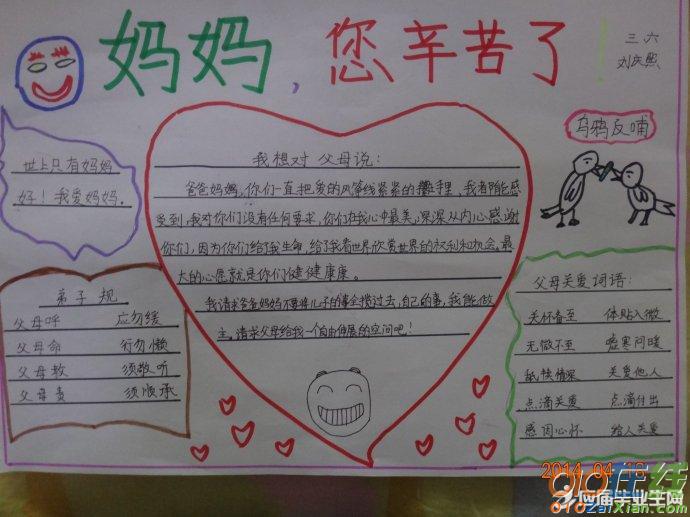 妈妈，您辛苦了！
三六
刘庆熙
世上只有妈妈
好！我爱妈妈。
我想对父母说：
爸爸妈妈，你们一直把爱的风筝线紧紧的攥手里，我者陏能感
受到，我对你们没有任何要求，你们在我心中最美，深深从内心感谢
你们，因为你们给了我生命，给了我看世界欣赏世界的权利和机会。最
大的心愿就是你们健健康康。
我请求爸爸妈妈不要将儿子的事全揽过去，自己的事，我能做
主。请求父母给我一个自由伸展的空间吧！
乌鸦反哺
弟子规
父母呼 应勿缓
父母命 行勿懒
父母教 须敬听
父母责 须顺承
父母关爱词语：
关怀备至 体贴入微
无微不至 嘘寒问暖
舐犊情深 关爱他人
点滴关爱 点滴付出
感因心怀 给人关爱
2014 04 16
应届毕业生网
010ZaiXian.com